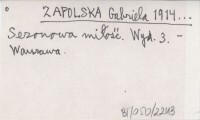 ZAPOLSKA Gabriela 1914...
Sezonowa miłość. Wyd. 3. –
Warszawa.
81/050/2243